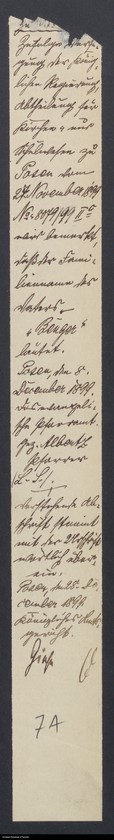 Zufolge Verfü-
gung der König-
lichen Regierung,
Abtheilung für
Kirchen- und
Schulwesen zu
Posen vom
27. November 1899
No: 8819/99 II a
wird bemerkt,
daß der Fami-
lienname des
Vaters
"Bünger"
lautet.
Posen, den 8.
Dezember 1899.
Das evangeli-
sche Pfarramt
gez. Albertz
Pfarrer
(L. S.)
Vorstehende Ab-
schrift stimmt
mit der Urschrift
wörtlich über-
ein.
Posen, den 28. De-
cember 1899
Königliches Amts-
gericht.
7A